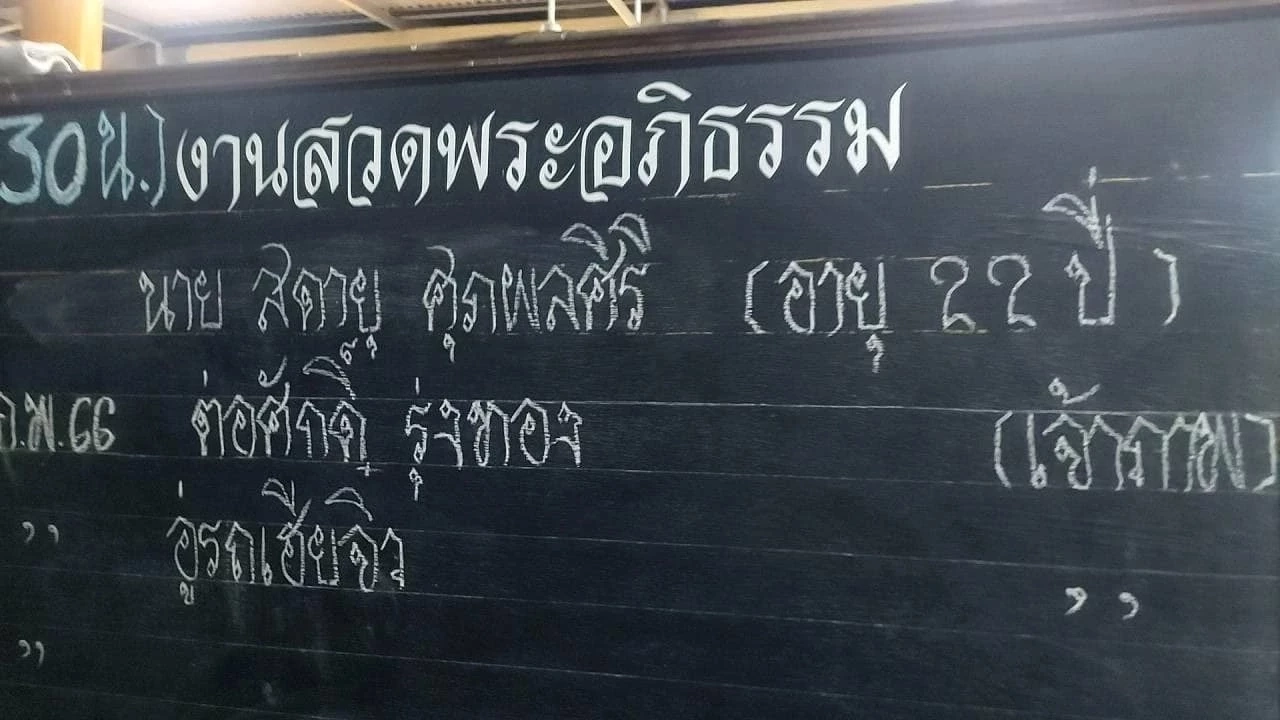 30 น.) งานสวดพระอภิธรรม
นาย สดายุ ศุภผลศิริ (อายุ 22 ปี)
ก.พ.66 ต่อศักดิ์ รุ่งทอง (เจ้าภาพ)
" อู่รถเฮียจิว "
"